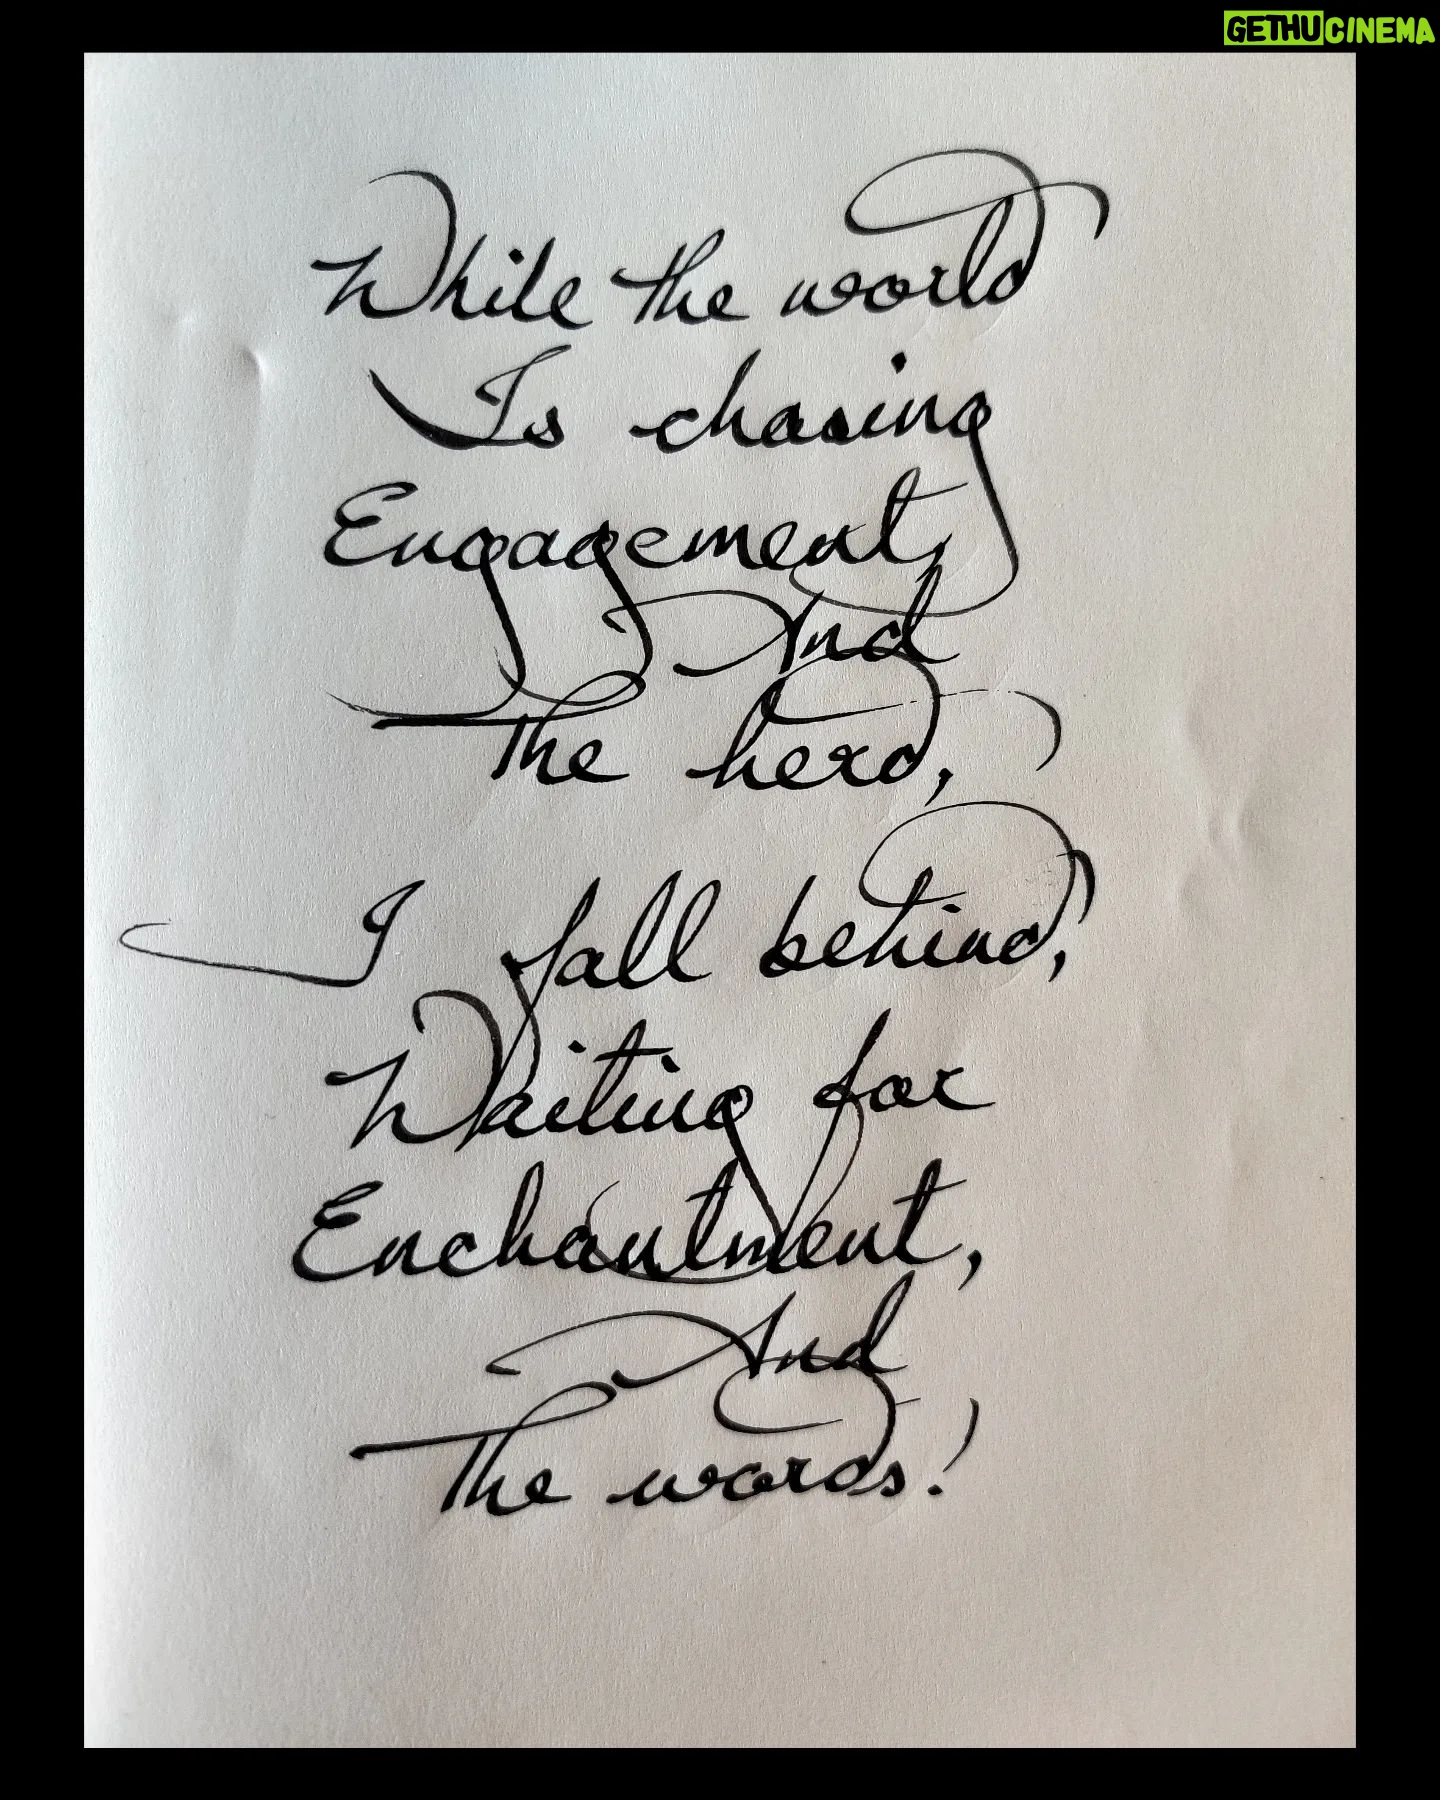 GETHUCINEMA
While the world
Is chasing
Engagement,
And
The herd,
I fall behind,
Waiting for
Enchantment,
And
The words!